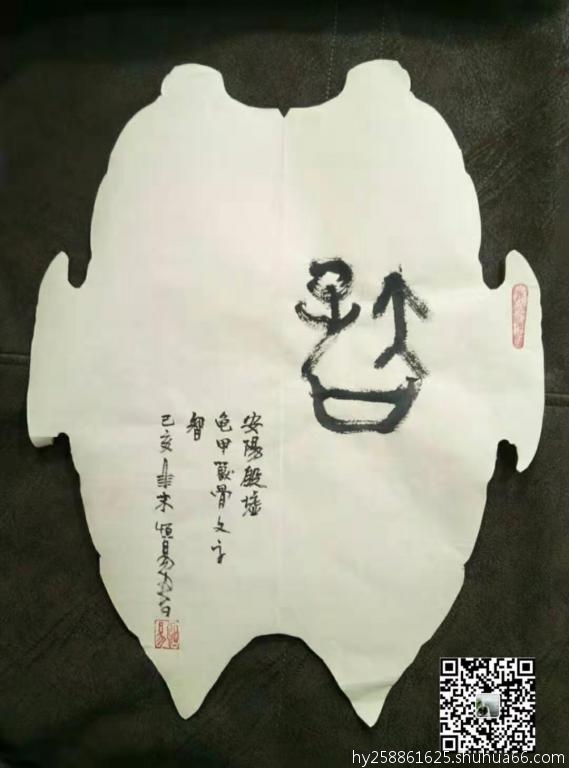 智
安陽殷墟
龟甲獸骨文字
智
己亥年末恒易书
hy258861625.shuhua66.com